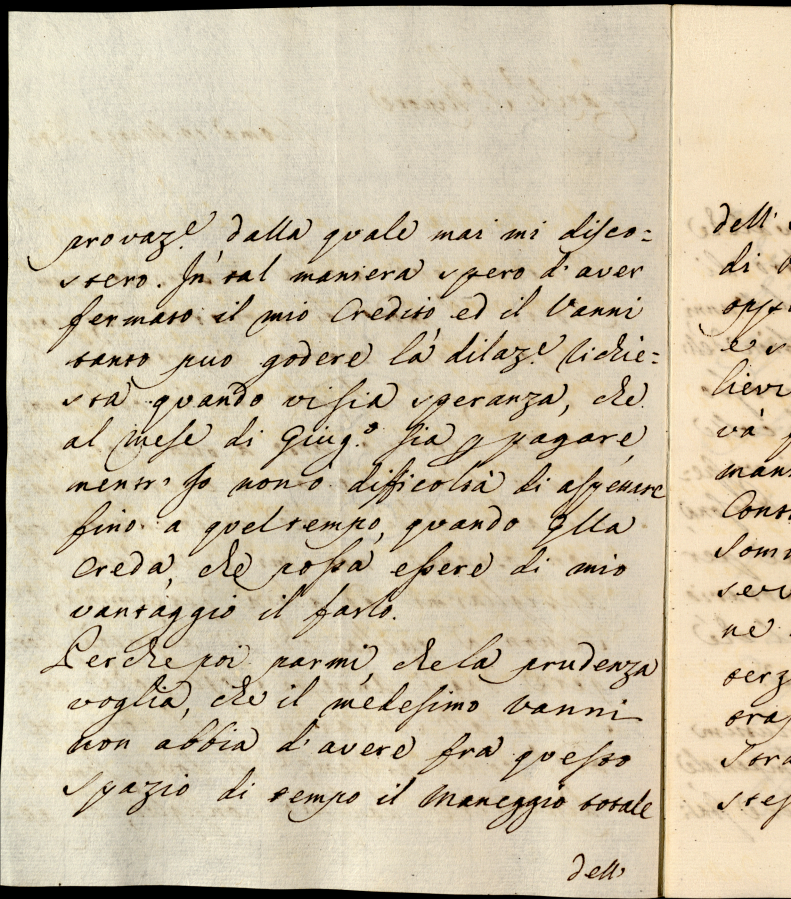 provaz.e dalla quale mai mi disco=
stero. In tal maniera spero d'aver
fermato il mio Credito ed il Vanni
tanto può godere la dilaz.e richie=
sta quando vi sia speranza, che
al mese di Giug.o sia p pagare,
mentr' Io non ò difficoltà di aspettare
fino a quel tempo, quando Ella
creda, che possa essere di mio
vantaggio il farlo.
Perche poi parmi, che la prudenza
voglia, che il medesimo Vanni
non abbia d'avere fra questo
spazio di tempo il maneggio totale
dell'
dell'
di
e s
lievi
và
mant
Cont
Somm
ne
terz
stes